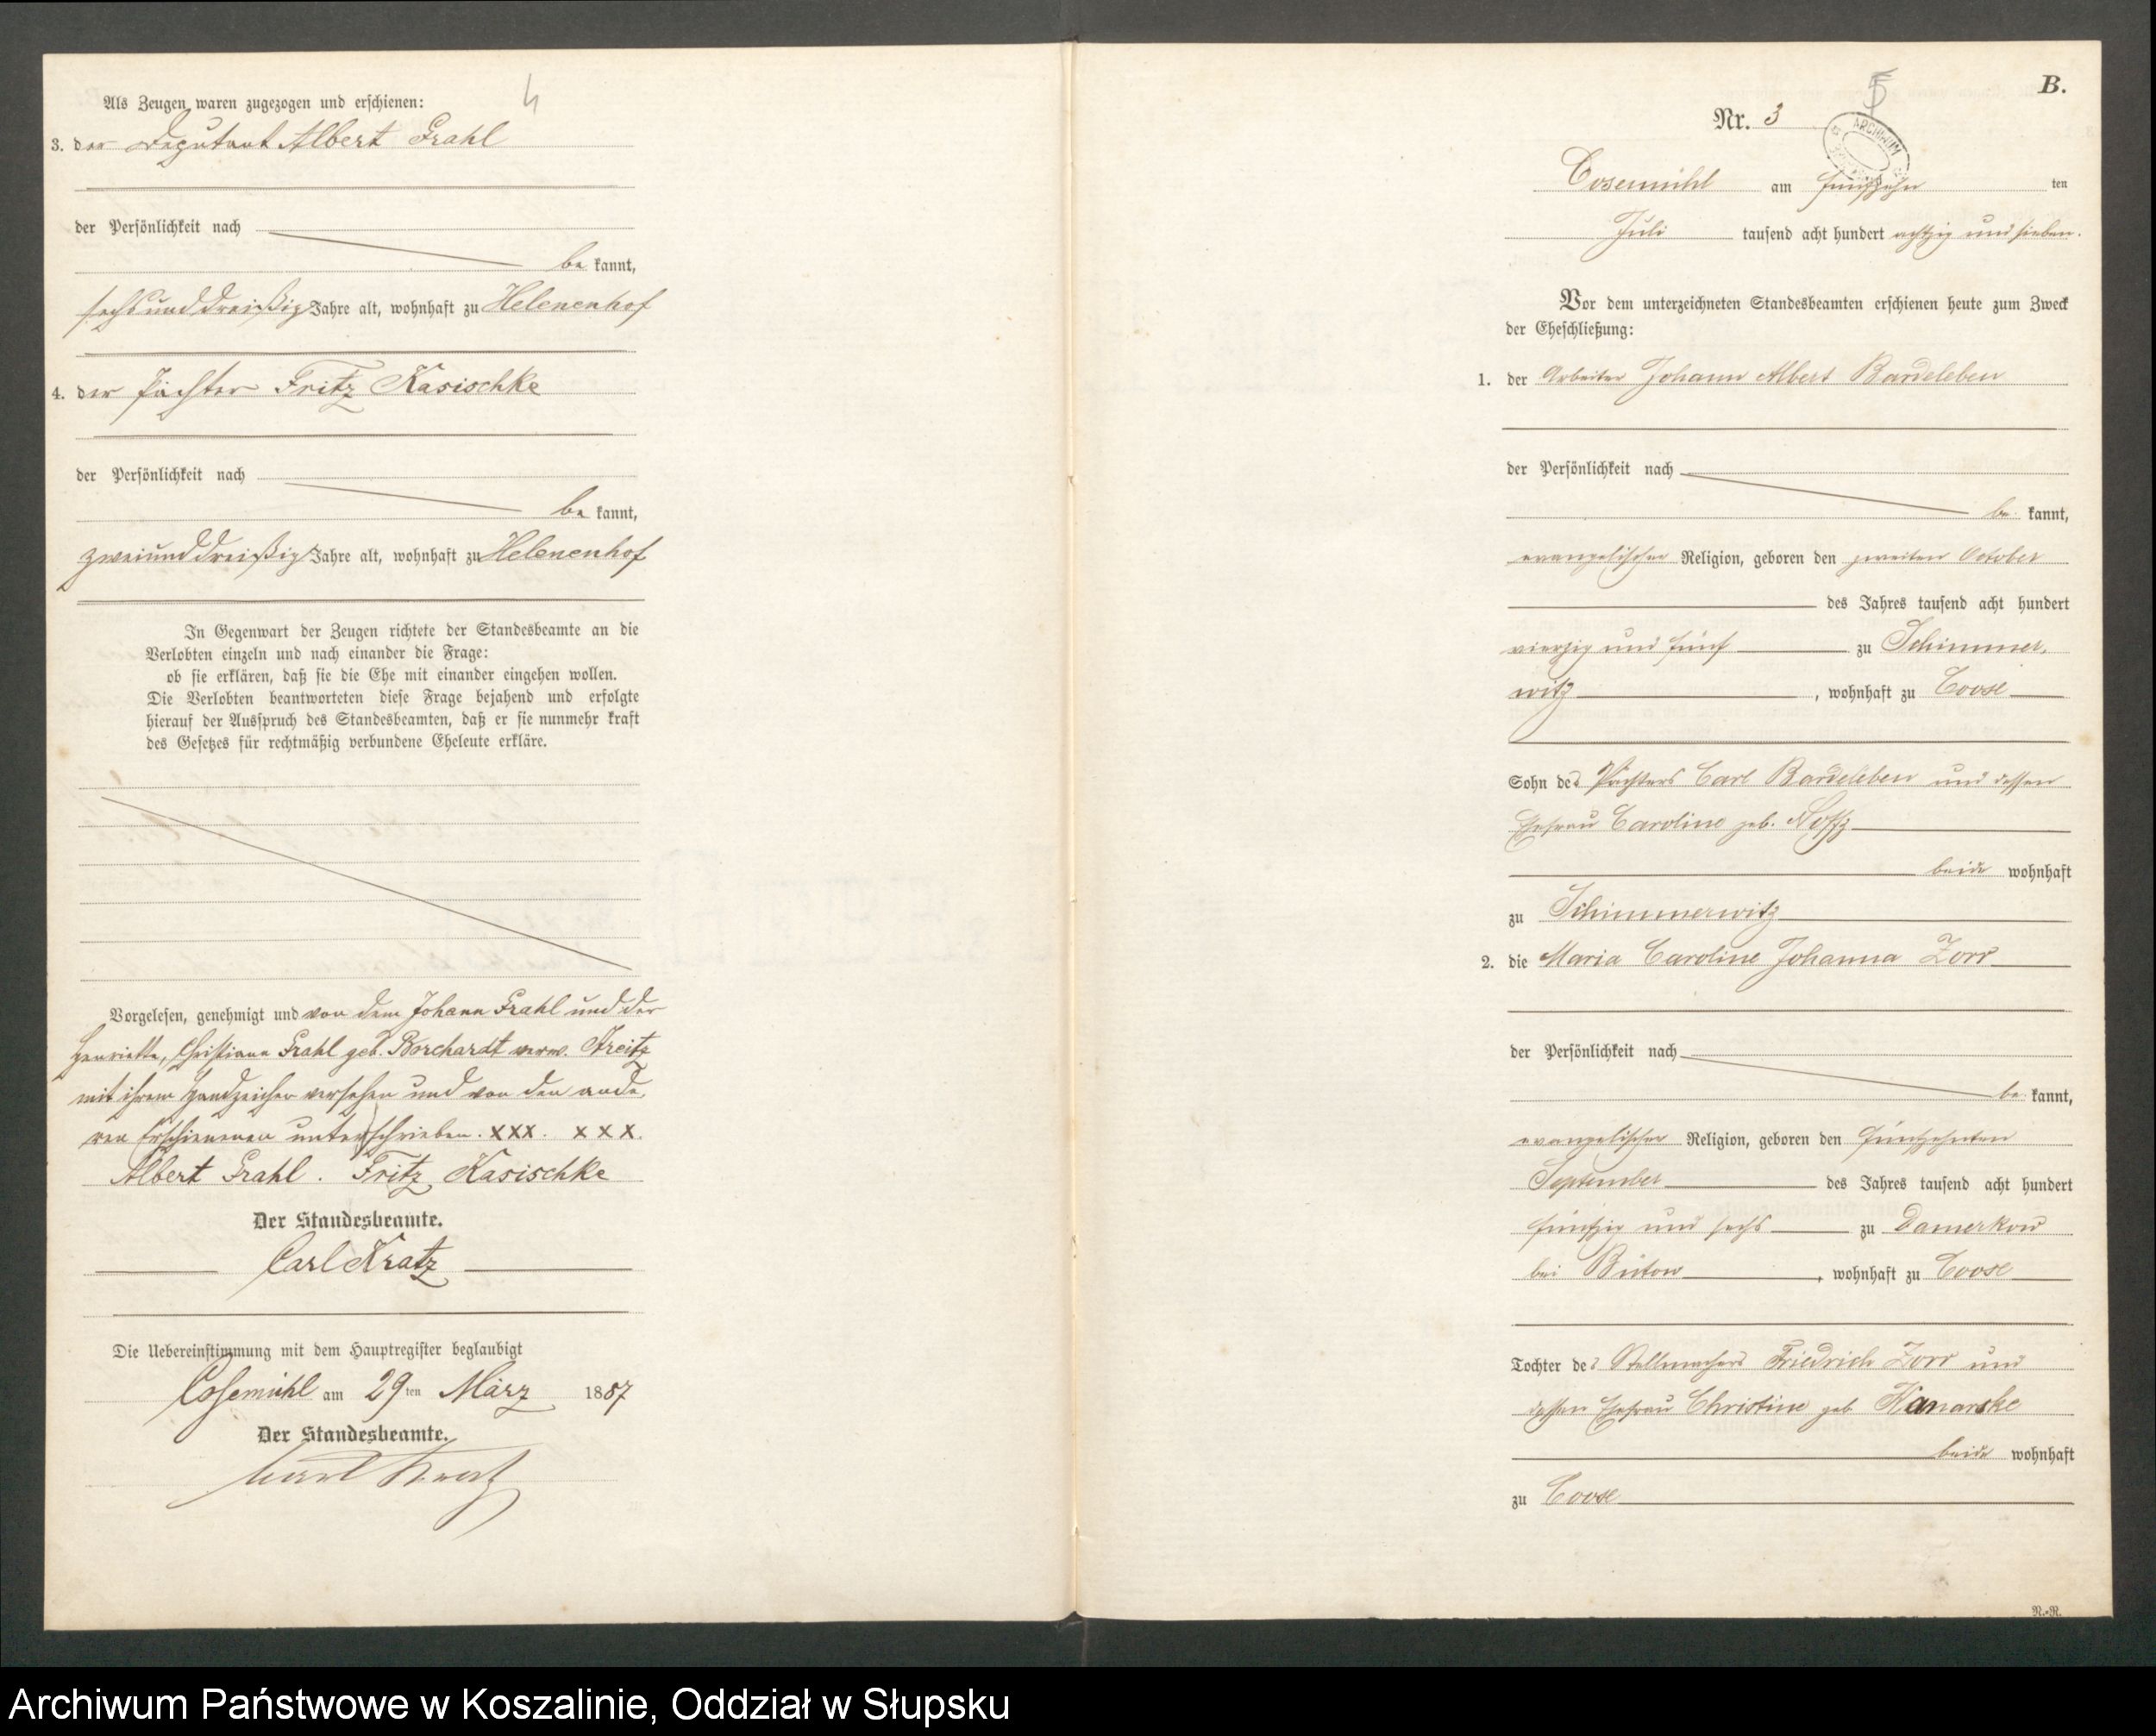 4
Als Zeugen waren zugezogen und erschienen:
3. der Deputant Albert Grahl
der Persönlichkeit nach
be kannt,
sechsunddreißig Jahre alt, wohnhaft zu Helenenhof
4. der Pächter Fritz Kasischke
der Persönlichkeit nach
be kannt,
zweiunddreißig Jahre alt, wohnhaft zu Helenenhof
In Gegenwart der Zeugen richtete der Standesbeamte an die
Verlobten einzeln und nach einander die Frage:
ob sie erklären, daß sie die Ehe mit einander eingehen wollen.
Die Verlobten beantworteten diese Frage bejahend und erfolgte
hierauf der Ausspruch des Standesbeamten, daß er sie nunmehr kraft
des Gesetzes für rechtmäßig verbundene Eheleute erkläre.
Vorgelesen, genehmigt und von dem Johann Grahl und der
Henriette, Christiane Grahl geb. Borchardt verw. Streitz
mit ihrem Handzeichen versehen und von den ande,
ren Erschienenen unterschrieben. XXX. XXX.
Albert Grahl. Fritz Kasischke
Der Standesbeamte.
Carl Kratz
Die Uebereinstimmung mit dem Hauptregister beglaubigt
Cosemühl am 29ten März 1887
Der Standesbeamte.
Carl Kratz
B.
5
Nr. 3
ARCHIWUM
Cosemühl am fünfzehn ten
Juli tausend acht hundert achtzig und sieben.
Vor dem unterzeichneten Standesbeamten erschienen heute zum Zweck
der Eheschließung:
1. der Arbeiter Johann Albert Bardeleben
der Persönlichkeit nach
be kannt,
evangelischer Religion, geboren den zweiten October
des Jahres tausend acht hundert
vierzig und fünf zu Schimmer,
witz, wohnhaft zu Coose
Sohn des Pächters Carl Bardeleben und dessen
Ehefrau Caroline geb. Noffz
beide wohnhaft
zu Schimmerwitz
2. die Maria Caroline Johanna Zorr
der Persönlichkeit nach
be kannt,
evangelischer Religion, geboren den fünfzehnten
September des Jahres tausend acht hundert
fünfzig und sechs zu Damerkow
bei Bütow, wohnhaft zu Coose
Tochter des Stellmachers Friedrich Zorr und
dessen Ehefrau Christine geb Kanarske
beide wohnhaft
zu Coose
R.-R.
Archiwum Państwowe w Koszalinie, Oddział w Słupsku